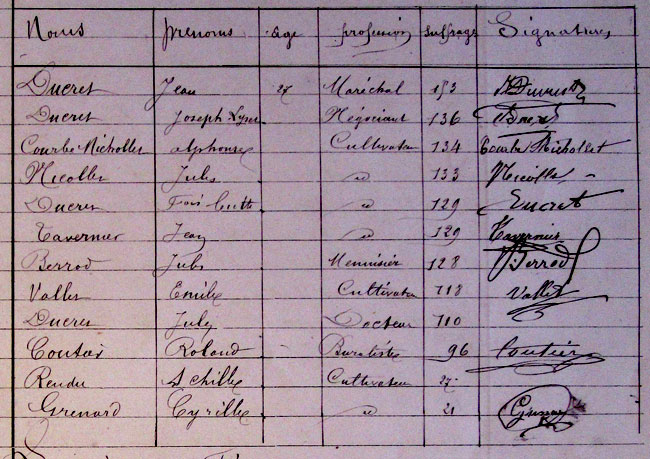 Noms Prenoms age profession suffrage Signatures
Ducret Jean 27 Maréchal 153 Ducret
Ducret Joseph Négociant 136
Courbe-Nichollet alphonse Cultivateur 134 Courbe Nichollet
Nicollet Jules id 133 Nicolle
Ducret id 129 Ducret
Tavernier Jean id 129 Tavernier
Berrod Jules Menuisier 128 Berrod
Vallet Emile Cultivateur 113 Vallet
Ducret Jules Docteur 110
Coutier Roland Buraliste 96 Coutier
Rendu Achille Cultivateur 27
Grenard Cyrille id 21